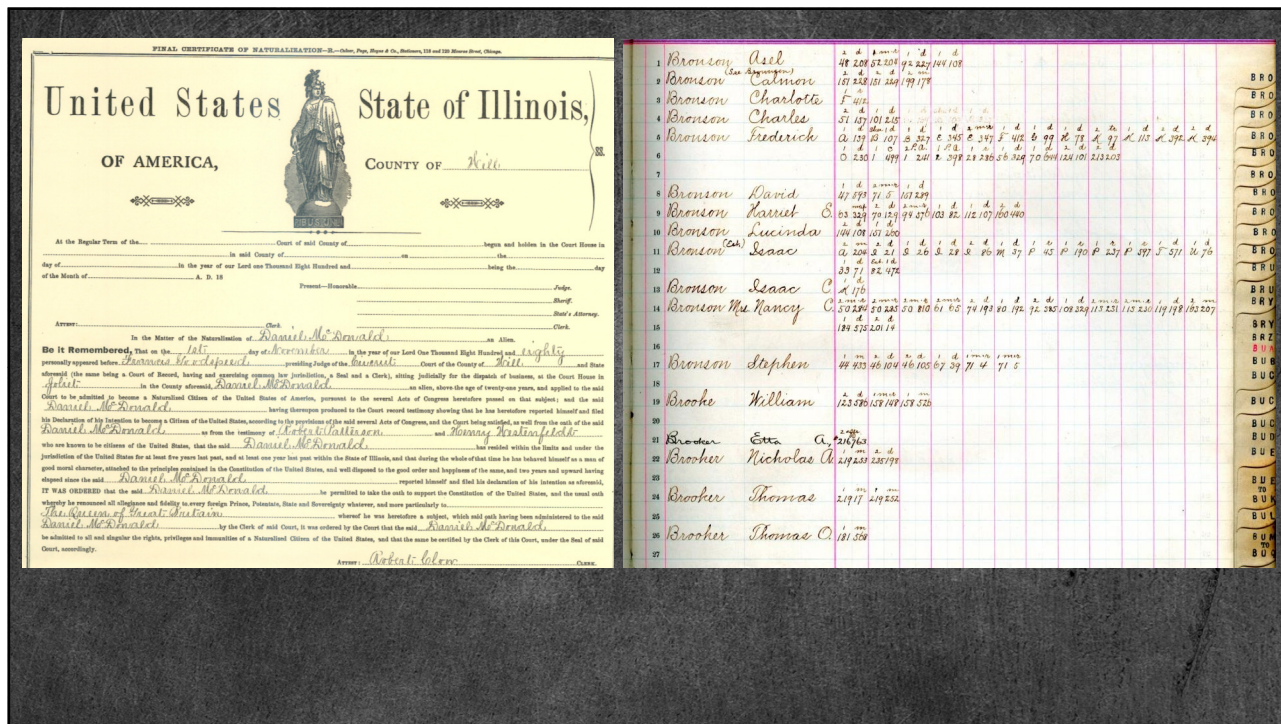 FINAL CERTIFICATE OF NATURALIZATION—R.—Culver, Page, Hoyne & Co., Stationers, 118 and 120 Monroe Street, Chicago.
United States State of Illinois,
OF AMERICA, COUNTY OF Will ss.
At the Regular Term of the Court of said County of begun and holden in the Court House in
in said County of on the
day of in the year of our Lord one Thousand Eight Hundred and being the day
of the Month of A. D. 18
Present—Honorable Judge.
Sheriff.
State's Attorney.
ATTEST: Clerk. Clerk.
In the Matter of the Naturalization of Daniel McDonald an Alien.
Be it Remembered, That on the 1st day of November in the year of our Lord One Thousand Eight Hundred and eighty
personally appeared before Frances Goodspeed presiding Judge of the Circuit Court of the County of Will and State
aforesaid (the same being a Court of Record, having and exercising common law jurisdiction, a Seal and a Clerk), sitting judicially for the dispatch of business, at the Court House in
Joliet in the County aforesaid, Daniel McDonald an alien, above the age of twenty-one years, and applied to the said
Court to be admitted to become a Naturalized Citizen of the United States of America, pursuant to the several Acts of Congress heretofore passed on that subject; and the said
Daniel McDonald having thereupon produced to the Court record testimony showing that he has heretofore reported himself and filed
his Declaration of his Intention to become a Citizen of the United States, according to the provisions of the said several Acts of Congress, and the Court being satisfied, as well from the oath of the said
Daniel McDonald as from the testimony of Robert Patterson and Henry Westenfeldt
who are known to be citizens of the United States, that the said Daniel McDonald has resided within the limits and under the
jurisdiction of the United States for at least five years last past, and at least one year last past within the State of Illinois, and that during the whole of that time he has behaved himself as a man of
good moral character, attached to the principles contained in the Constitution of the United States, and well disposed to the good order and happiness of the same, and two years and upward having
elapsed since the said Daniel McDonald reported himself and filed his declaration of his intention as aforesaid,
IT WAS ORDERED that the said Daniel McDonald be permitted to take the oath to support the Constitution of the United States, and the usual oath
whereby he renounced all allegiance and fidelity to every foreign Prince, Potentate, State and Sovereignty whatever, and more particularly to
The Queen of Great Britain whereof he was heretofore a subject, which said oath having been administered to the said
Daniel McDonald by the Clerk of said Court, it was ordered by the Court that the said Daniel McDonald
be admitted to all and singular the rights, privileges and immunities of a Naturalized Citizen of the United States, and that the same be certified by the Clerk of this Court, under the Seal of said
Court, accordingly.
ATTEST: Robert Clow CLERK.
1 Bronson Asel 48 208 52 204 92 227 144 108
2 Bronson Calmon 151 228 151 229 199 178
3 Bronson Charlotte F 412
4 Bronson Charles 51 157 101 215
5 Bronson Frederich A 139 B 107 B 327 E 345 E 347 F 412 G 99 H 78 K 97 K 113 K 392 K 394
6 O 230 1 499 1 241 2 398 28 286 56 329 70 644 124 101 213 203
7
8 Bronson David 47 593 71 5 151 289
9 Bronson Harriet E. 63 329 70 129 94 576 103 82 112 107 160 440
10 Bronson Lucinda 144 108 151 260
11 Bronson Isaac A 204 I 21 I 26 I 28 I 86 M 37 P 45 P 190 P 257 P 597 T 571 U 76
12 33 71 82 472
13 Bronson Isaac C. K 176
14 Bronson Mrs Nancy C. 50 284 50 285 50 810 61 65 74 193 80 192 92 385 108 329 115 231 115 230 119 198 163 207
15 184 575 201 14
16
17 Bronson Stephen 44 433 46 104 46 105 67 39 71 4 71 5
18
19 Brooke William 123 586 158 148 158 526
20
21 Brooker Etta A, 216 763
22 Brooker Nicholas A. 219 253 235 198
23
24 Brooker Thomas 219 17 219 252
25
26 Brooker Thomas O. 181 568
27
BRO
BRO
BRO
BRO
BRO
BRO
BRO
BRO
BRO
BRO
BRU
BRU
BRY
BRY
BRZ
BUA
BUB
BUC
BUC
BUC
BUD
BUE
BUE
TO
BUK
BUL
BUM
TO